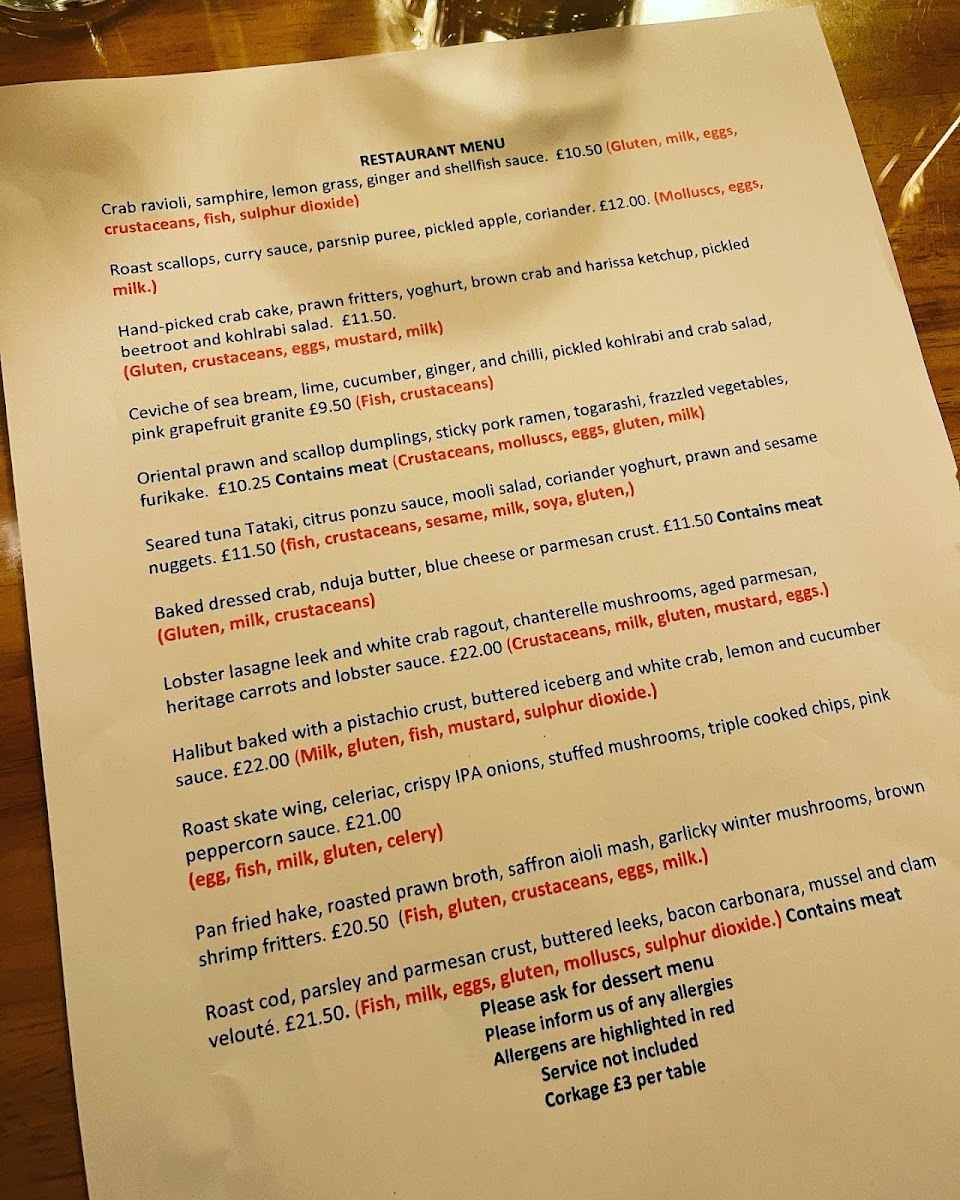 RESTAURANT MENU
Crab ravioli, samphire, lemon grass, ginger and shellfish sauce. £10.50 (Gluten, milk, eggs,
crustaceans, fish, sulphur dioxide)
Roast scallops, curry sauce, parsnip puree, pickled apple, coriander. £12.00. (Molluscs, eggs,
milk.)
Hand-picked crab cake, prawn fritters, yoghurt, brown crab and harissa ketchup, pickled
beetroot and kohlrabi salad. £11.50.
(Gluten, crustaceans, eggs, mustard, milk)
Ceviche of sea bream, lime, cucumber, ginger, and chilli, pickled kohlrabi and crab salad,
pink grapefruit granite £9.50 (Fish, crustaceans)
Oriental prawn and scallop dumplings, sticky pork ramen, togarashi, frazzled vegetables,
furikake. £10.25 Contains meat (Crustaceans, molluscs, eggs, gluten, milk)
Seared tuna Tataki, citrus ponzu sauce, mooli salad, coriander yoghurt, prawn and sesame
nuggets. £11.50 (fish, crustaceans, sesame, milk, soya, gluten,)
Baked dressed crab, nduja butter, blue cheese or parmesan crust. £11.50 Contains meat
(Gluten, milk, crustaceans)
Lobster lasagne leek and white crab ragout, chanterelle mushrooms, aged parmesan,
heritage carrots and lobster sauce. £22.00 (Crustaceans, milk, gluten, mustard, eggs.)
Halibut baked with a pistachio crust, buttered iceberg and white crab, lemon and cucumber
sauce. £22.00 (Milk, gluten, fish, mustard, sulphur dioxide.)
Roast skate wing, celeriac, crispy IPA onions, stuffed mushrooms, triple cooked chips, pink
peppercorn sauce. £21.00
(egg, fish, milk, gluten, celery)
Pan fried hake, roasted prawn broth, saffron aioli mash, garlicky winter mushrooms, brown
shrimp fritters. £20.50 (Fish, gluten, crustaceans, eggs, milk.)
Roast cod, parsley and parmesan crust, buttered leeks, bacon carbonara, mussel and clam
velouté. £21.50. (Fish, milk, eggs, gluten, molluscs, sulphur dioxide.) Contains meat
Please ask for dessert menu
Please inform us of any allergies
Allergens are highlighted in red
Service not included
Corkage £3 per table